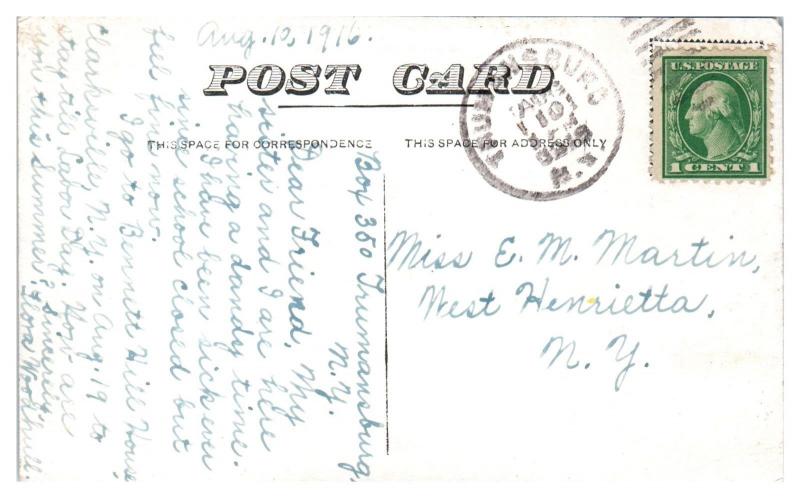 Aug. 10, 1916.
POST CARD
THIS SPACE FOR CORRESPONDENCE
THIS SPACE FOR ADDRESS ONLY
TRUMANSBURG
AUG
10
N.Y.
U.S. POSTAGE
1 CENT 1
Box 350 Trumansburg,
N.Y.
Dear Friend, My
sister and I are here
having a dandy time.
I have been sick ever
since school closed but
feel fine now.
I go to Bennett Hill House
Clarksville, N.Y. on Aug. 19 to
stay till Labor Day. How are
you this Summer? Sincerely,
Flora Woodhull.
Miss E. M. Martin,
West Henrietta,
N. Y.